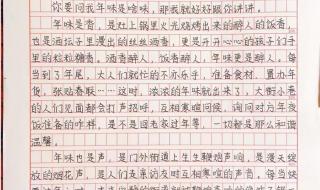 你要问我年味是啥味,那我就好好跟你讲讲。
年味是香,是灶上锅里火光烧烤出来的醉人的饭香,
也是酒坛子里漫出的丝丝酒香,更是开开心心的孩子们手
里的粒粒糖香。酒香醉人,饭香解人,糖香甜人。每
当到了年尾,大人们就忙的不亦乐乎,准备食材,置办年
货,张贴春联……这时,浓浓的年味就出来了,大街小巷
的人们见面都会打声招呼,互相寒暄问候,询问对方年夜
饭准备的咋样,是不是回老家过年等,一切都是那么和谐
温馨。
年味也是声,是门外街道上生生鞭炮声响,是漫天绽
放的烟花声,是人们走亲访友时互相寒暄的声音。每当快